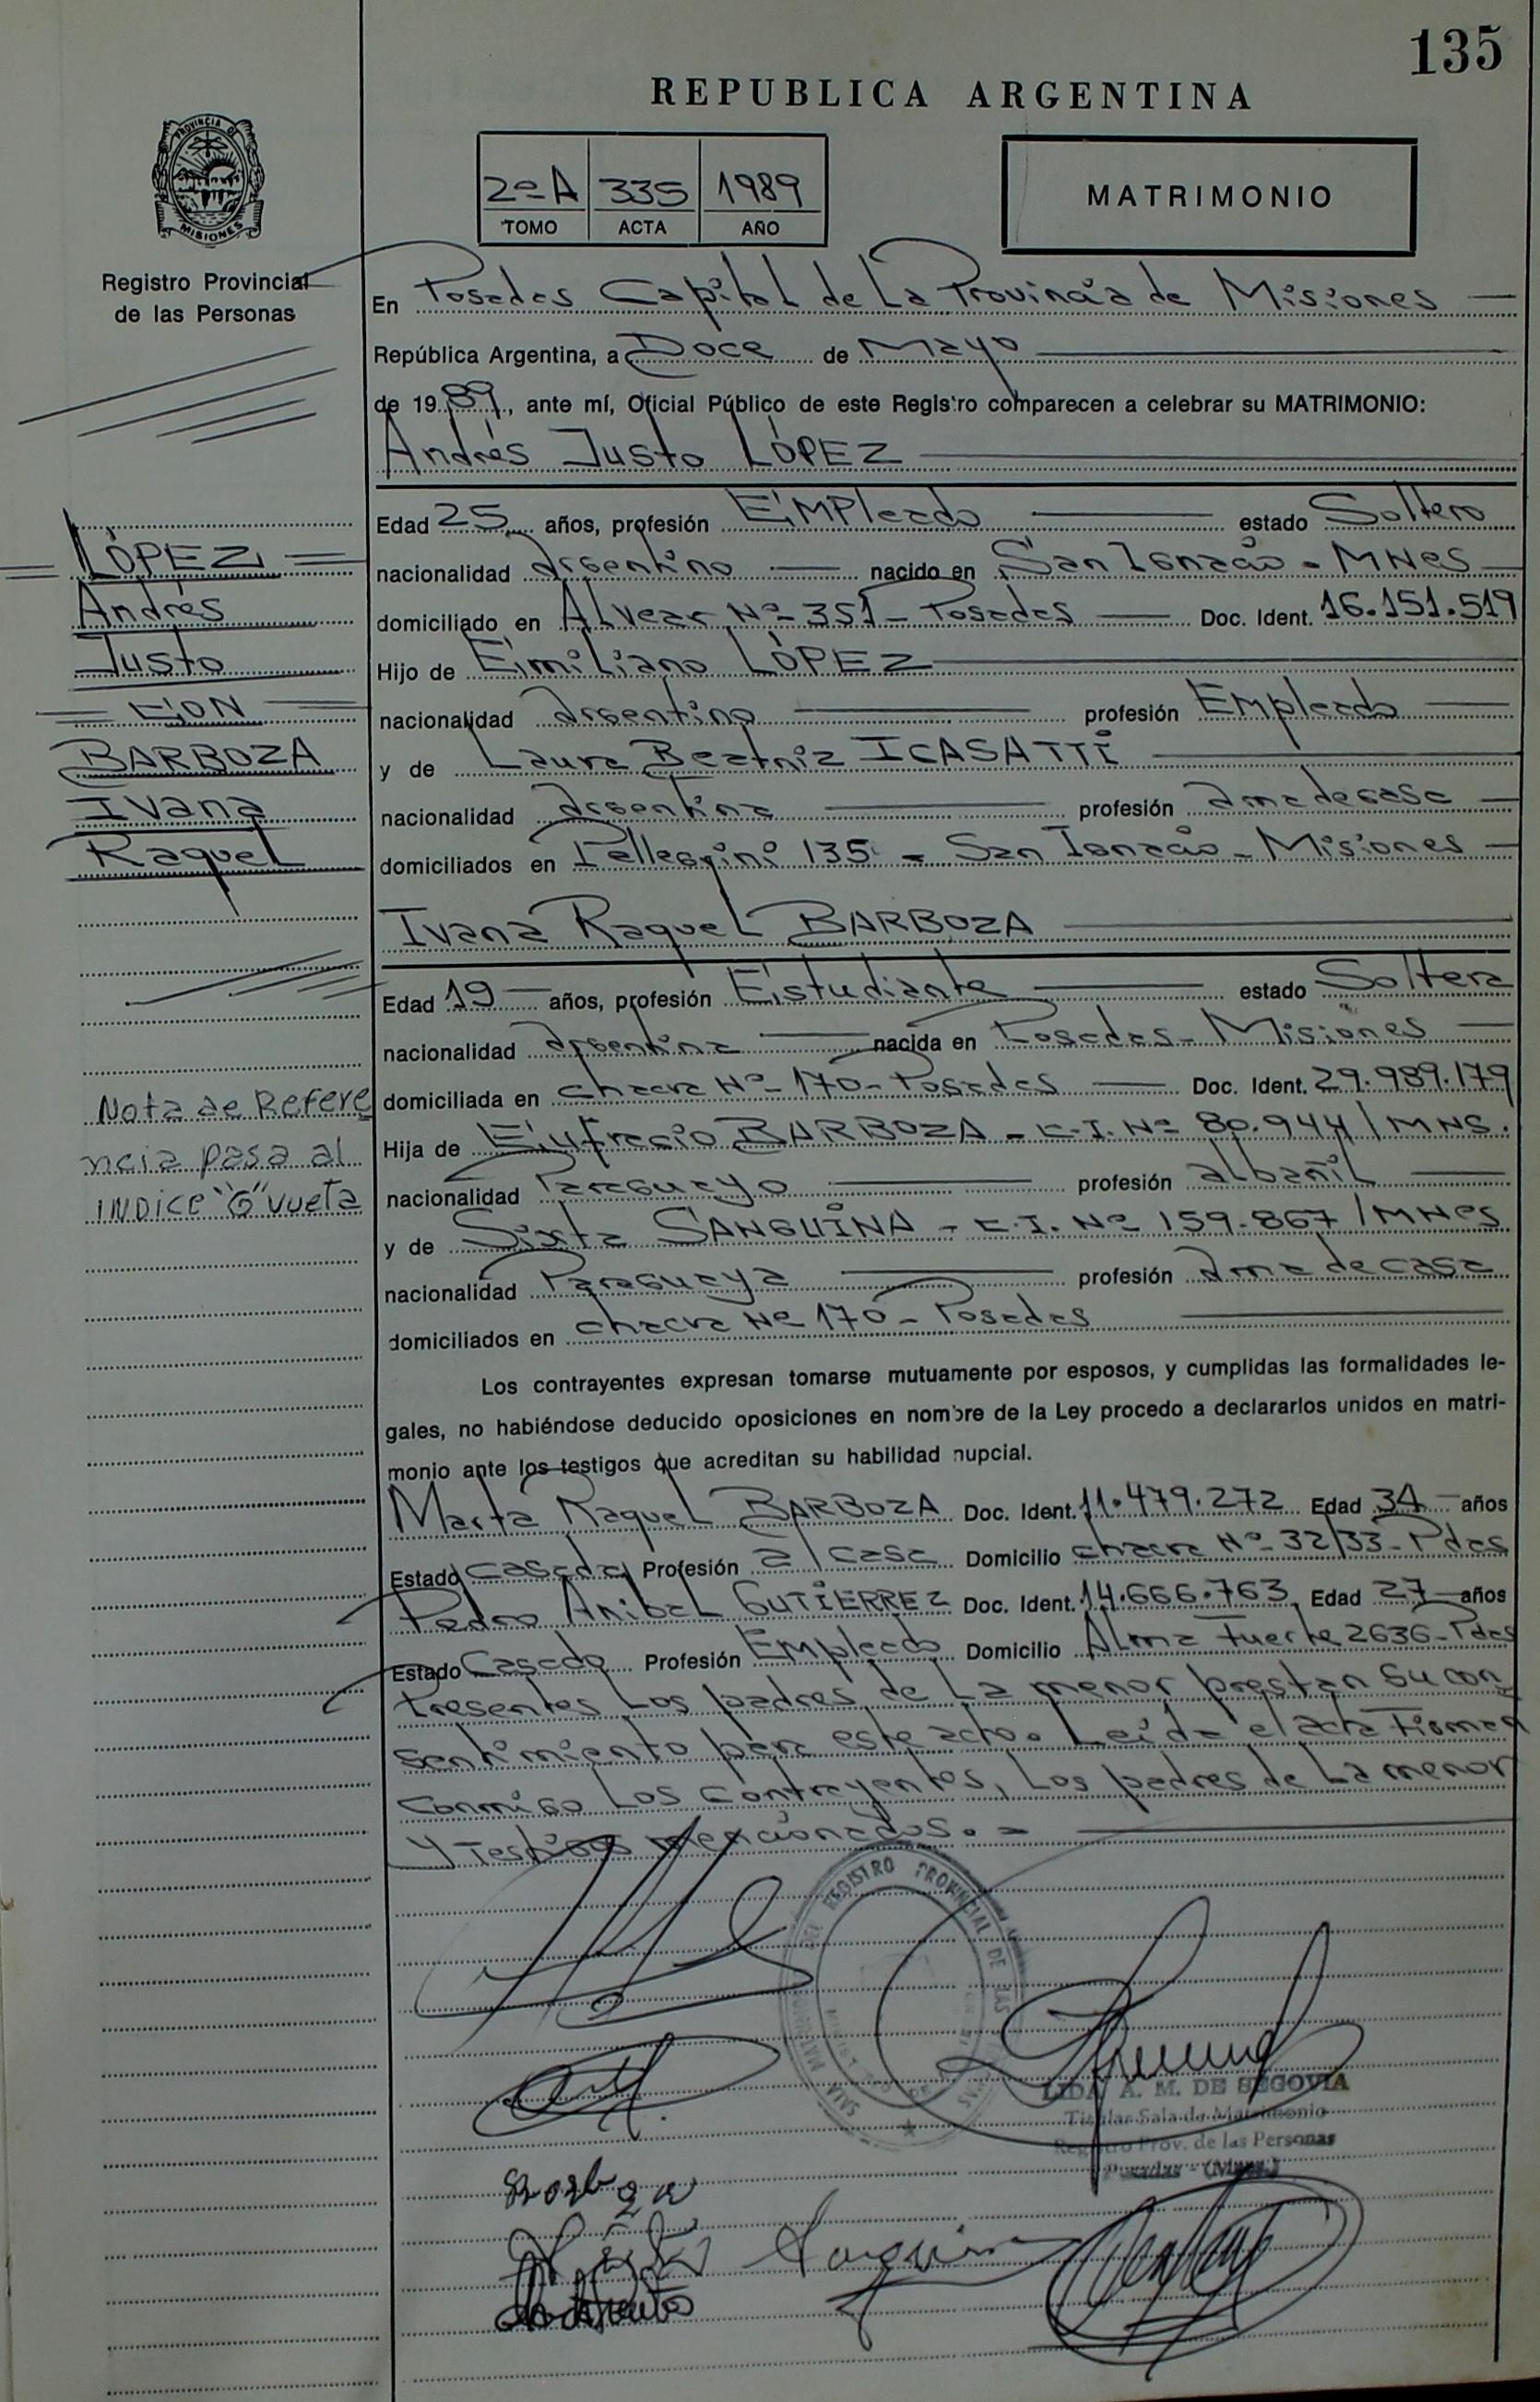 135
REPUBLICA ARGENTINA
PROVINCIA DE
MISIONES
2º A 335 1989
TOMO ACTA AÑO
MATRIMONIO
Registro Provincial
de las Personas
En Posadas Capital de La Provincia de Misiones
República Argentina, a Doce de Mayo
de 1989, ante mí, Oficial Público de este Registro comparecen a celebrar su MATRIMONIO:
Andrés Justo LÓPEZ
LÓPEZ
Andrés
Justo
CON
BARBOZA
Ivana
Raquel
Edad 25 años, profesión Empleado estado Soltero
nacionalidad argentino nacido en San Ignacio - MNes
domiciliado en Alvear Nº 351 - Posadas Doc. Ident. 16.151.519
Hijo de Emiliano LÓPEZ
nacionalidad argentino profesión Empleado
y de Laura Beatriz ICASATTI
nacionalidad argentina profesión ama de casa
domiciliados en Pellegrini 135 - San Ignacio - Misiones
Ivana Raquel BARBOZA
Edad 19 años, profesión Estudiante estado Soltera
nacionalidad argentina nacida en Posadas - Misiones
domiciliada en chacra Nº 170 - Posadas Doc. Ident. 29.989.179
Hija de Eufracio BARBOZA - C.I. Nº 80.944/MNS.
nacionalidad Paraguayo profesión albañil
y de Sixta SANGUINA - C.I. Nº 159.867/MNes
nacionalidad Paraguaya profesión ama de casa
domiciliados en chacra Nº 170 - Posadas
Nota de Refere
ncia pasa al
INDICE "G" vueta
Los contrayentes expresan tomarse mutuamente por esposos, y cumplidas las formalidades le-
gales, no habiéndose deducido oposiciones en nombre de la Ley procedo a declararlos unidos en matri-
monio ante los testigos que acreditan su habilidad nupcial.
Marta Raquel BARBOZA Doc. Ident. 11.479.272 Edad 34 años
Estado Casada Profesión a/casa Domicilio chacra Nº 32/33 - Pdas
Pedro Anibal GUTIERREZ Doc. Ident. 14.666.763 Edad 27 años
Estado Casado Profesión Empleado Domicilio Alma Fuerte 2636 - Pdas
Presentes Los padres de La menor prestan su con
sentimiento para este acto. Leída el acta Firman
conmigo Los contrayentes, Los padres de La menor
y Testigos mencionados.=
DEL REGISTRO PROVINCIAL DE LAS
SALA
LIDA A. M. DE SEGOVIA
Titular Sala de Matrimonio
Registro Prov. de las Personas
Posadas - (Mnes.)